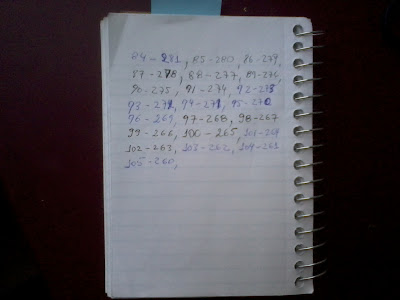 84-281, 85-280, 86-279,
87-278, 88-277, 89-276,
90-275, 91-274, 92-273
93-272, 94-271, 95-270
96-269, 97-268, 98-267
99-266, 100-265, 101-264
102-263, 103-262, 104-261
105-260,